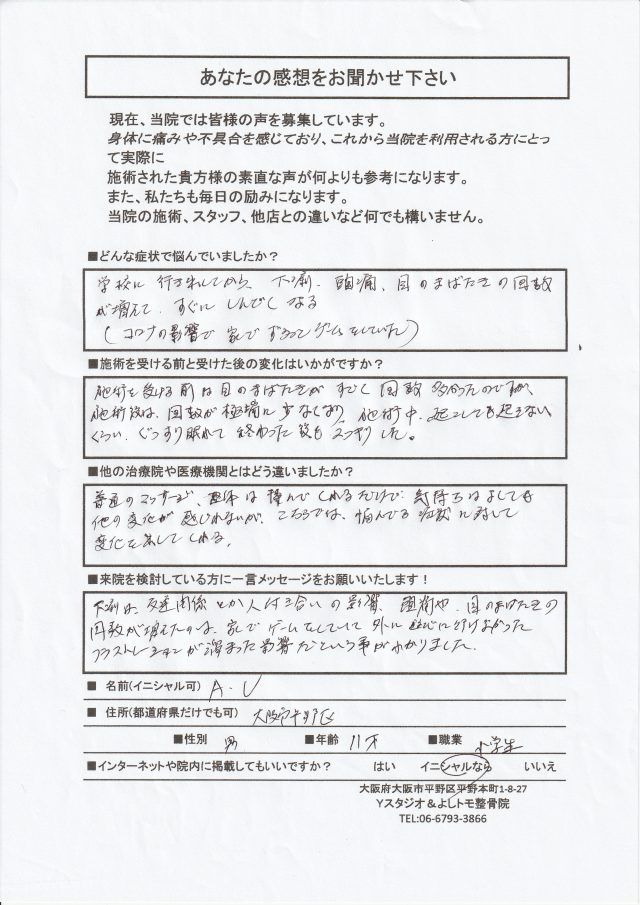 あなたの感想をお聞かせ下さい
現在、当院では皆様の声を募集しています。
身体に痛みや不具合を感じており、これから当院を利用される方にとっ
て実際に
施術された貴方様の素直な声が何よりも参考になります。
また、私たちも毎日の励みになります。
当院の施術、スタッフ、他店との違いなど何でも構いません。
■どんな症状で悩んでいましたか？
学校に行きだしてから、下痢、頭痛、目のまばたきの回数
が増えて、すぐにしんどくなる
(コロナの影響で家でずっとゲームをしていた)
■施術を受ける前と受けた後の変化はいかがですか？
施術を受ける前は目のまばたきがすごく回数多かったのですが、
施術後は、回数が極端に少なくなり、施術中、起こしても起きない
くらい、ぐっすり眠れて終わった後もスッキリした。
■他の治療院や医療機関とはどう違いましたか？
普通のマッサージ、整体は揉んでくれるだけで、気持ちはよくても
他の変化が感じれないが、こちらでは、悩んでる症状に対して
変化を出してくれる。
■来院を検討している方に一言メッセージをお願いいたします！
下痢は、友達関係とか人付き合いの影響、頭痛や、目のまばたきの
回数が増えたのは、家でゲームをしていて外に遊びに行けなかった
フラストレーションが溜まった影響だという事がわかりました。
■ 名前(イニシャル可) A.U
■ 住所(都道府県だけでも可) 大阪市平野区
■性別 男 ■年齢 11才 ■職業 小学生
■インターネットや院内に掲載してもいいですか？ はい イニシャルなら いいえ
大阪府大阪市平野区平野本町1-8-27
Yスタジオ＆よしトモ整骨院
TEL:06-6793-3866